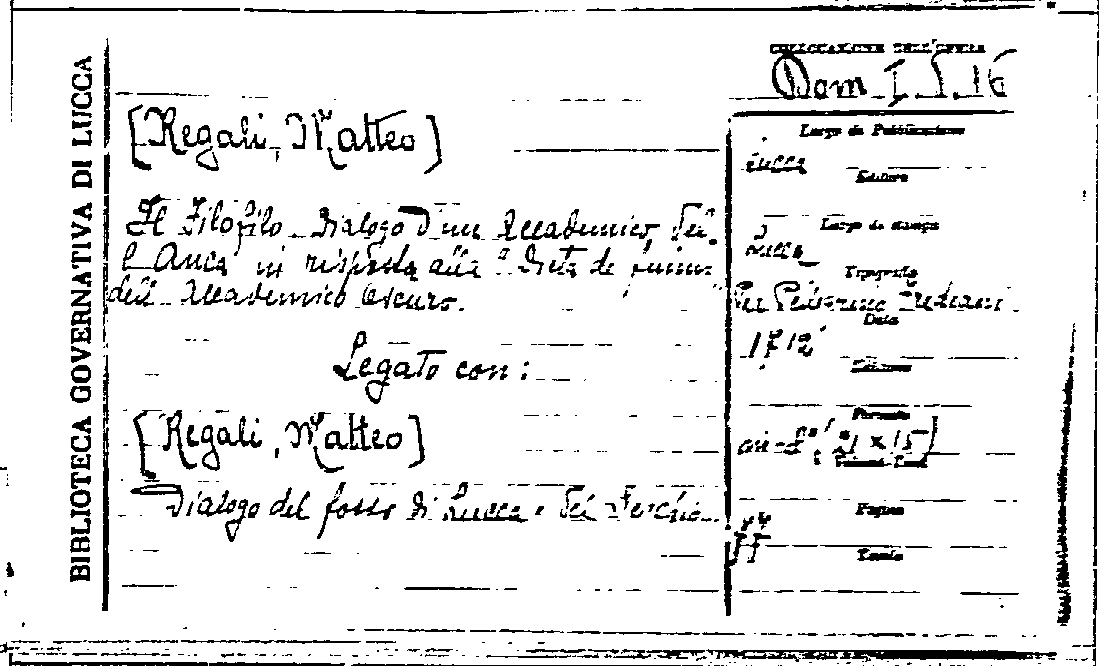 BIBLIOTECA GOVERNATIVA DI LUCCA
COLLOCAZIONE DELL'OPERA
Dom I. 5. 16
[Regali, Matteo]
Il Filofilo Dialogo d'un Accademico
in risposta alla
dell'Accademico Oscuro.
Legato con:
[Regali, Matteo]
Dialogo del fosso di Lucca e del Serchio
Luogo di Pubblicazione
Lucca
Editore
Luogo di stampa
Lucca
Tipografia
Per Pellegrino Frediani
Data
1712
Edizione
Formato
in-8° (21 x 15)
Pagine
Tavole